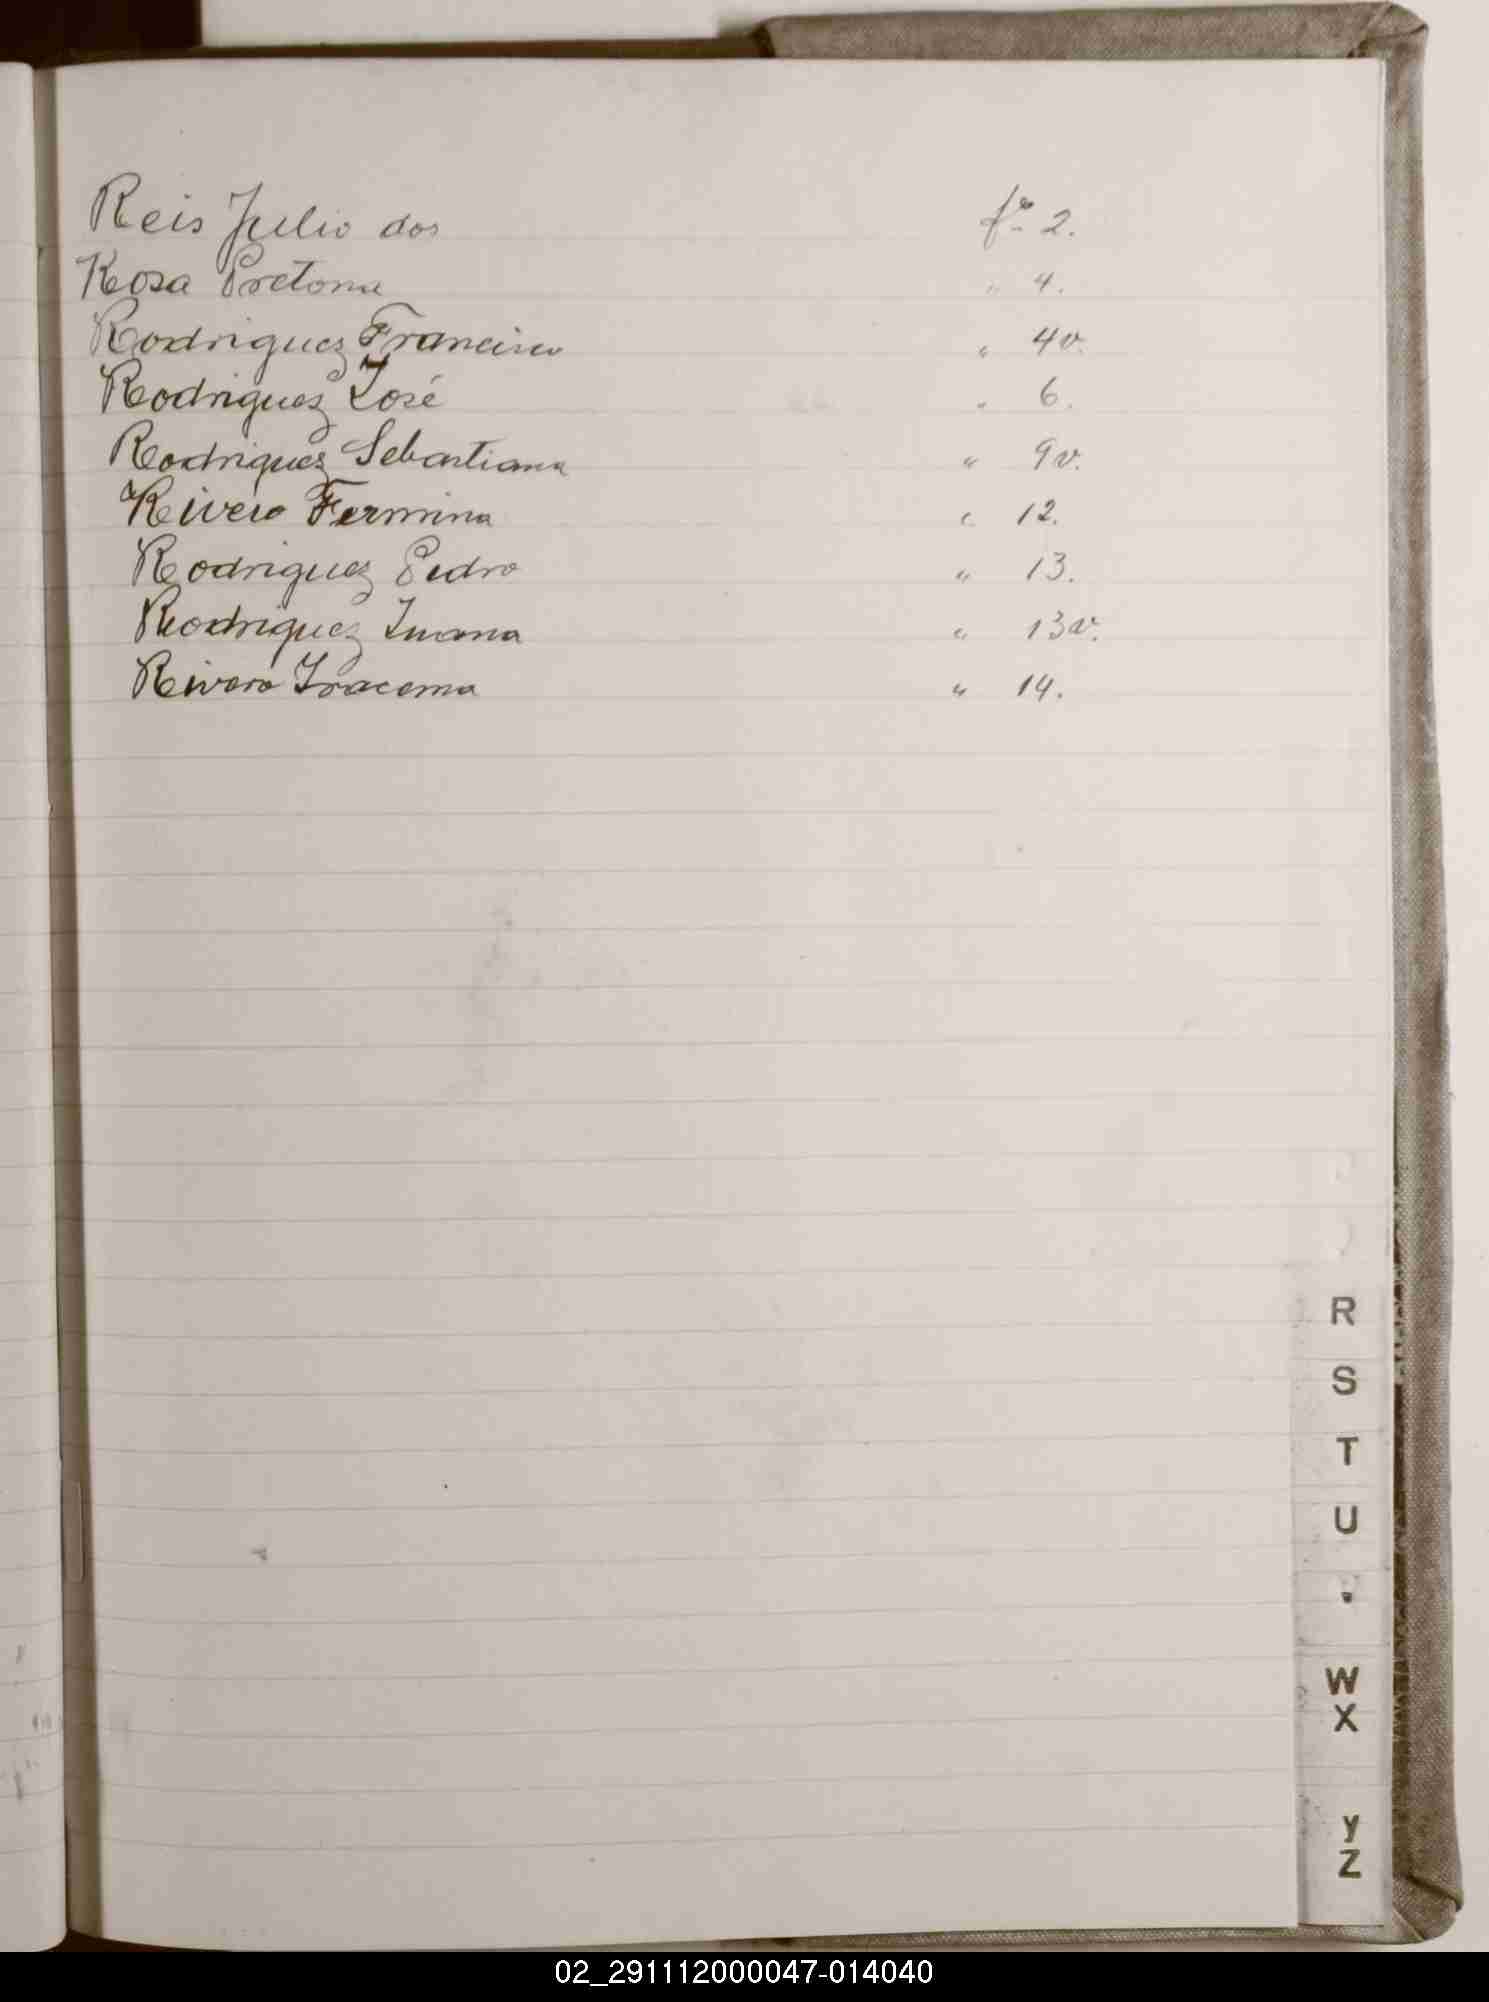 Reis Julio dos fº 2.
Rosa Pretona " 4.
Rodriguez Francisco " 4v.
Rodriguez José " 6.
Rodriguez Sebastiana " 9v.
Rivero Fermina " 12.
Rodriguez Pedro " 13.
Rodriguez Juana " 13v.
Rivero Iracema " 14.
R
S
T
U
W
X
Y
Z
02_291112000047-014040